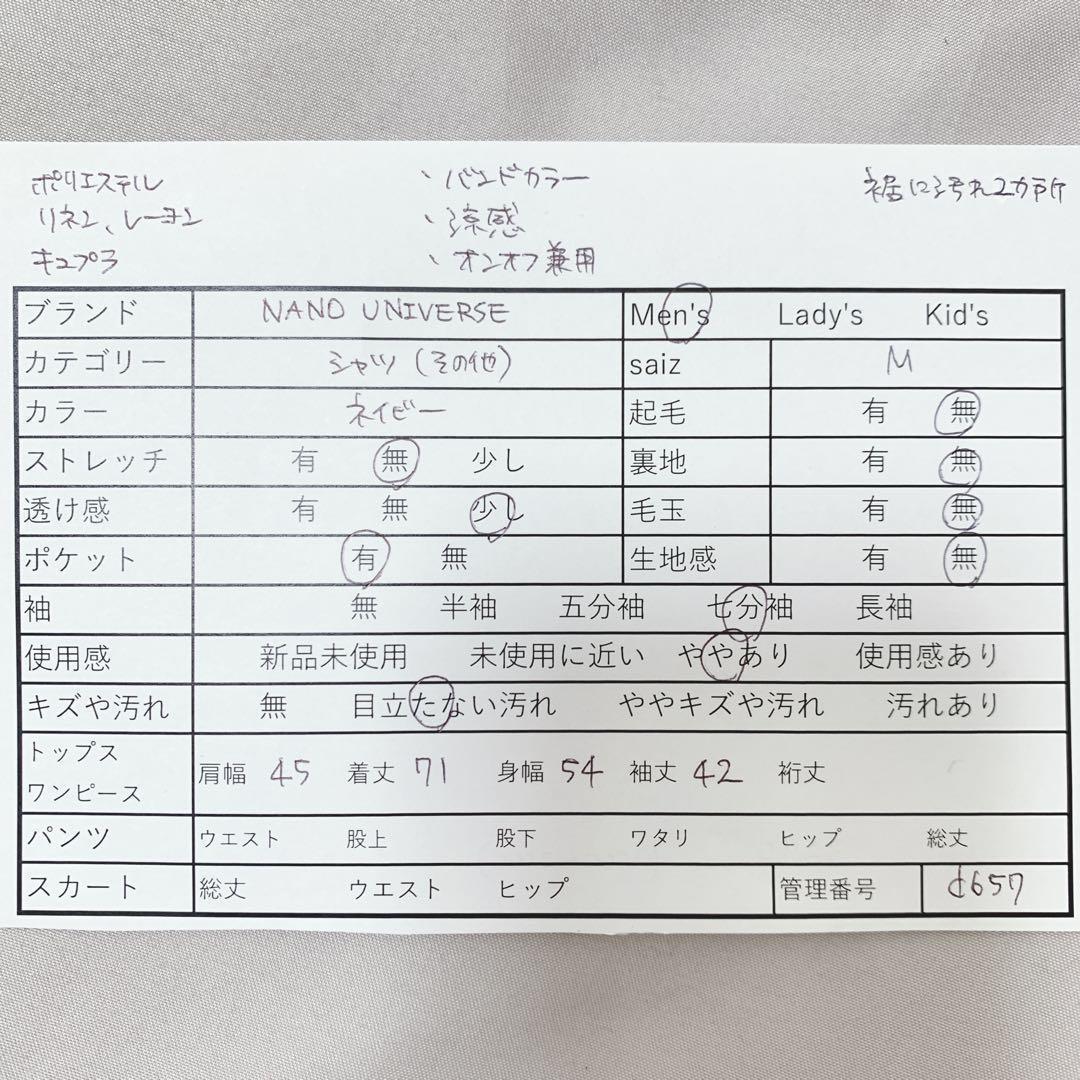 ポリエステル
リネン、レーヨン
キュプラ
・バンドカラー
・涼感
・オンオフ兼用
裾に汚れ2カ所
ブランド NANO UNIVERSE Men's Lady's Kid's
カテゴリー シャツ(その他) saiz M
カラー ネイビー 起毛 有 無
ストレッチ 有 無 少し 裏地 有 無
透け感 有 無 少し 毛玉 有 無
ポケット 有 無 生地感 有 無
袖 無 半袖 五分袖 七分袖 長袖
使用感 新品未使用 未使用に近い ややあり 使用感あり
キズや汚れ 無 目立たない汚れ ややキズや汚れ 汚れあり
トップス
ワンピース 肩幅 45 着丈 71 身幅 54 袖丈 42 裄丈
パンツ ウエスト 股上 股下 ワタリ ヒップ 総丈
スカート 総丈 ウエスト ヒップ 管理番号 d657